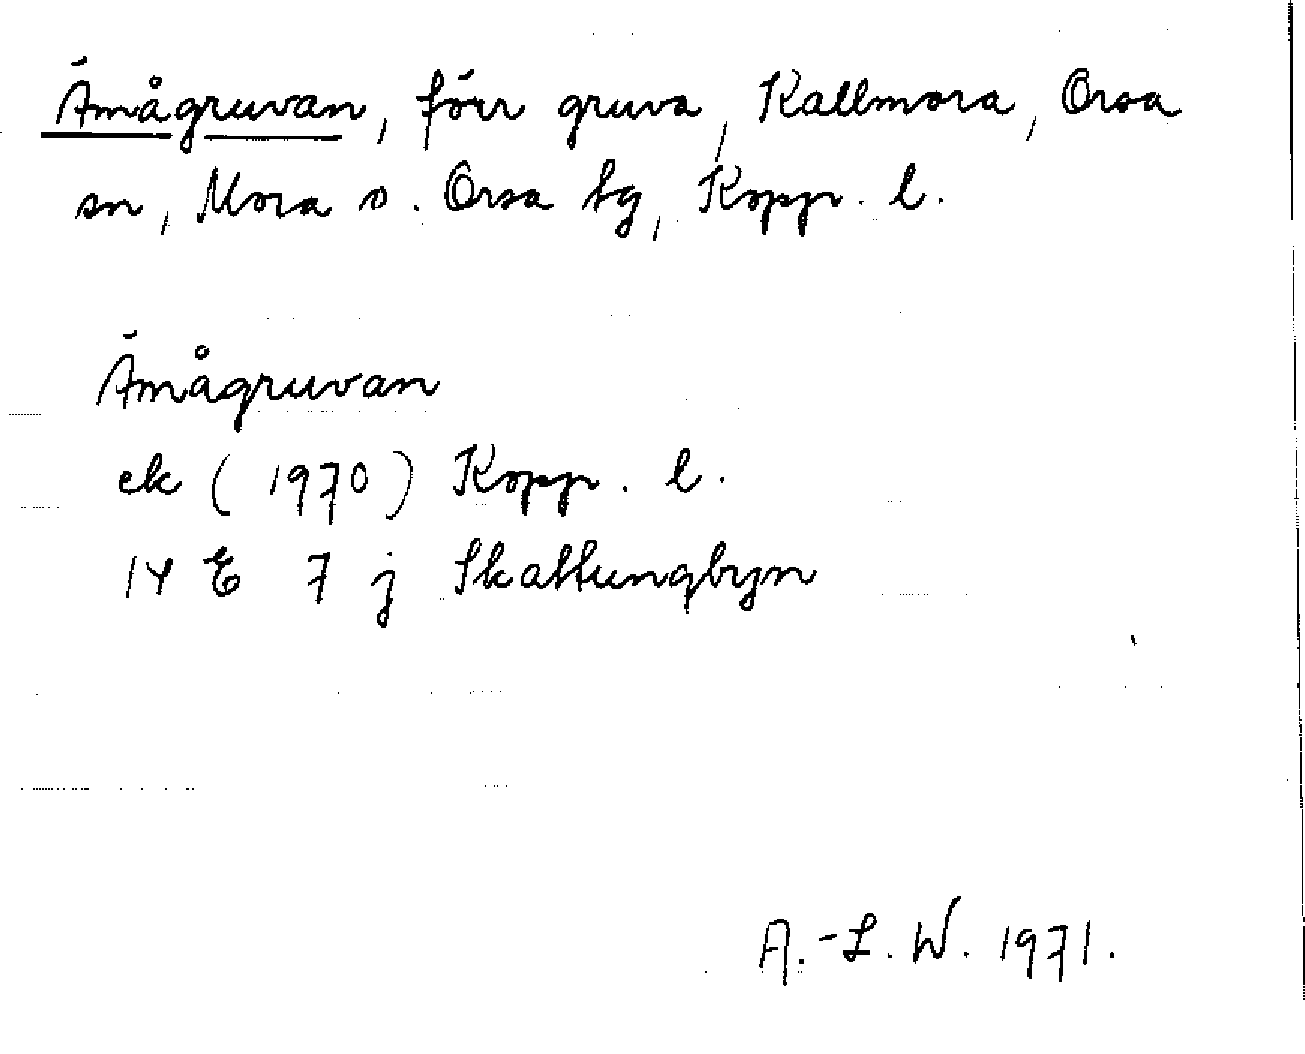 Ämågruvan, förr gruva, Kallmora, Orsa
sn, Mora o. Orsa tg, Kopp. l.
Ämågruvan
ek (1970) Kopp. l.
14 E 7 j Skattungbyn
A.-L. W. 1971.